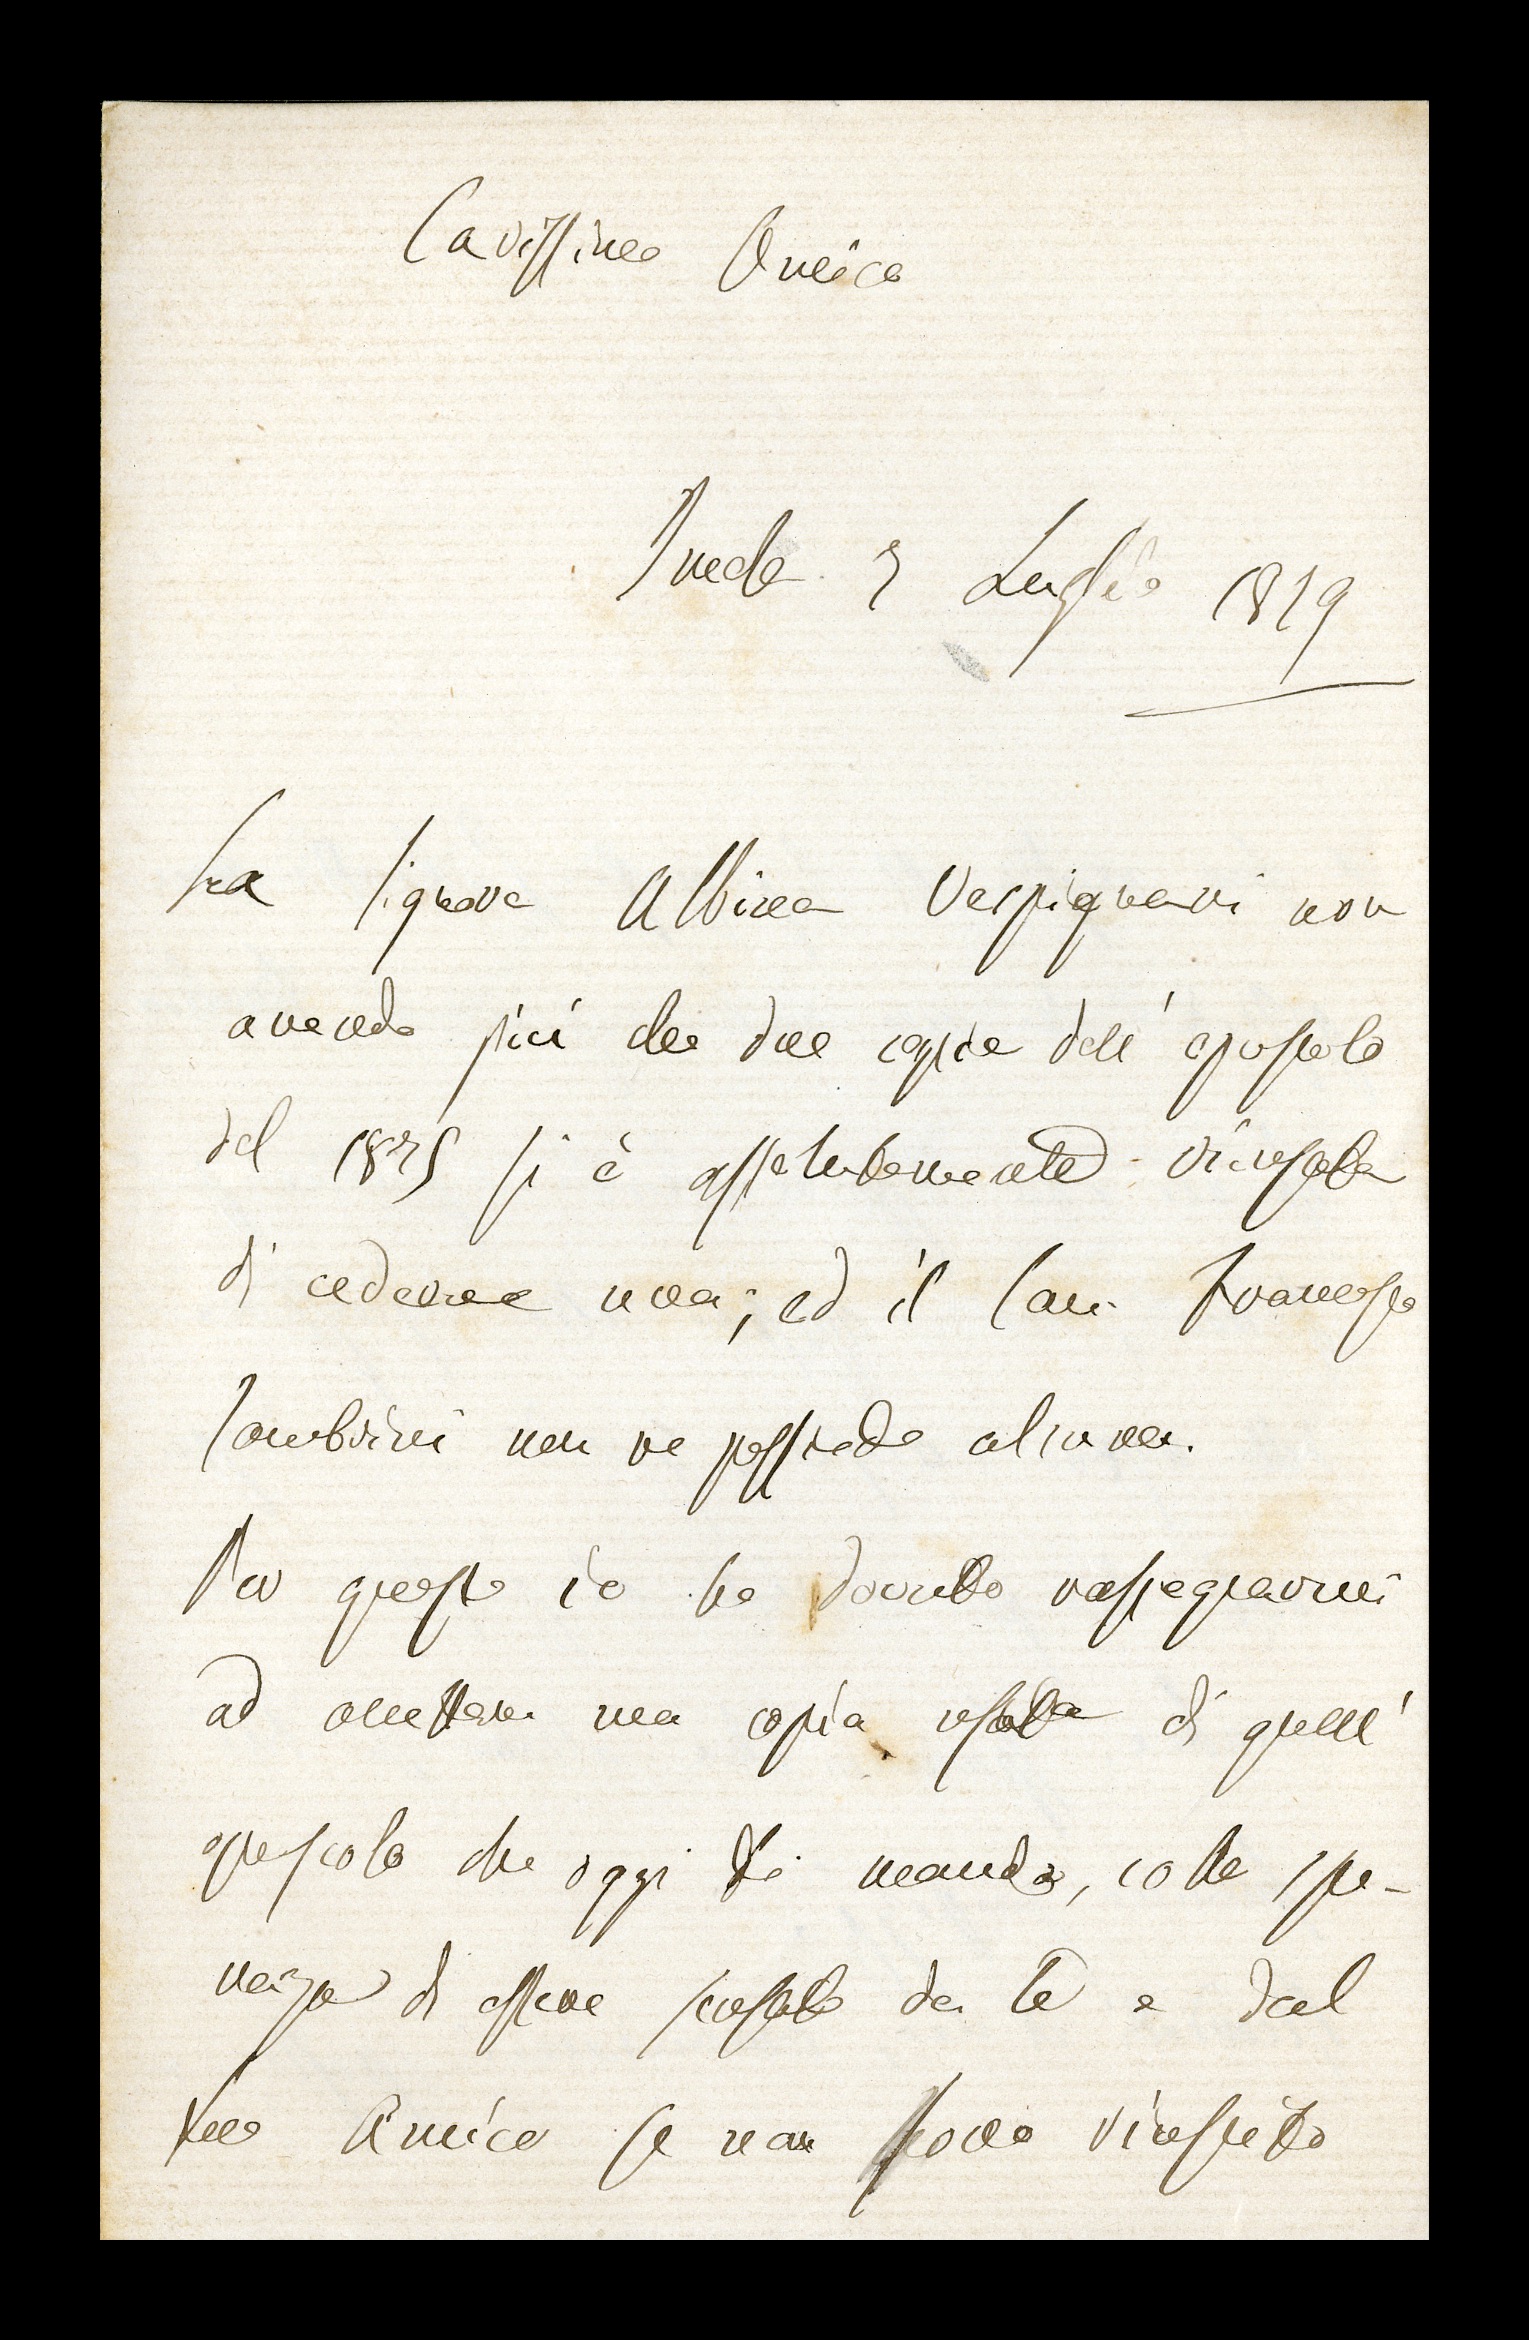 Carissimo Amico
Imola 7 Luglio 1879
La Signora Albina Vespignani non
avendo più che due copie dell'opuscolo
del 1875 si è assolutamente ricusata
di cederne una; ed il Cav. Francesco
Tambrini non ne possiede alcuna.
Per questo io ho dovuto rassegnarmi
ad accettare una copia usata di quell'
opuscolo che oggi ti mando, colla spe-
ranza di essere scusato da te e dal
tuo Amico se non sono riuscito